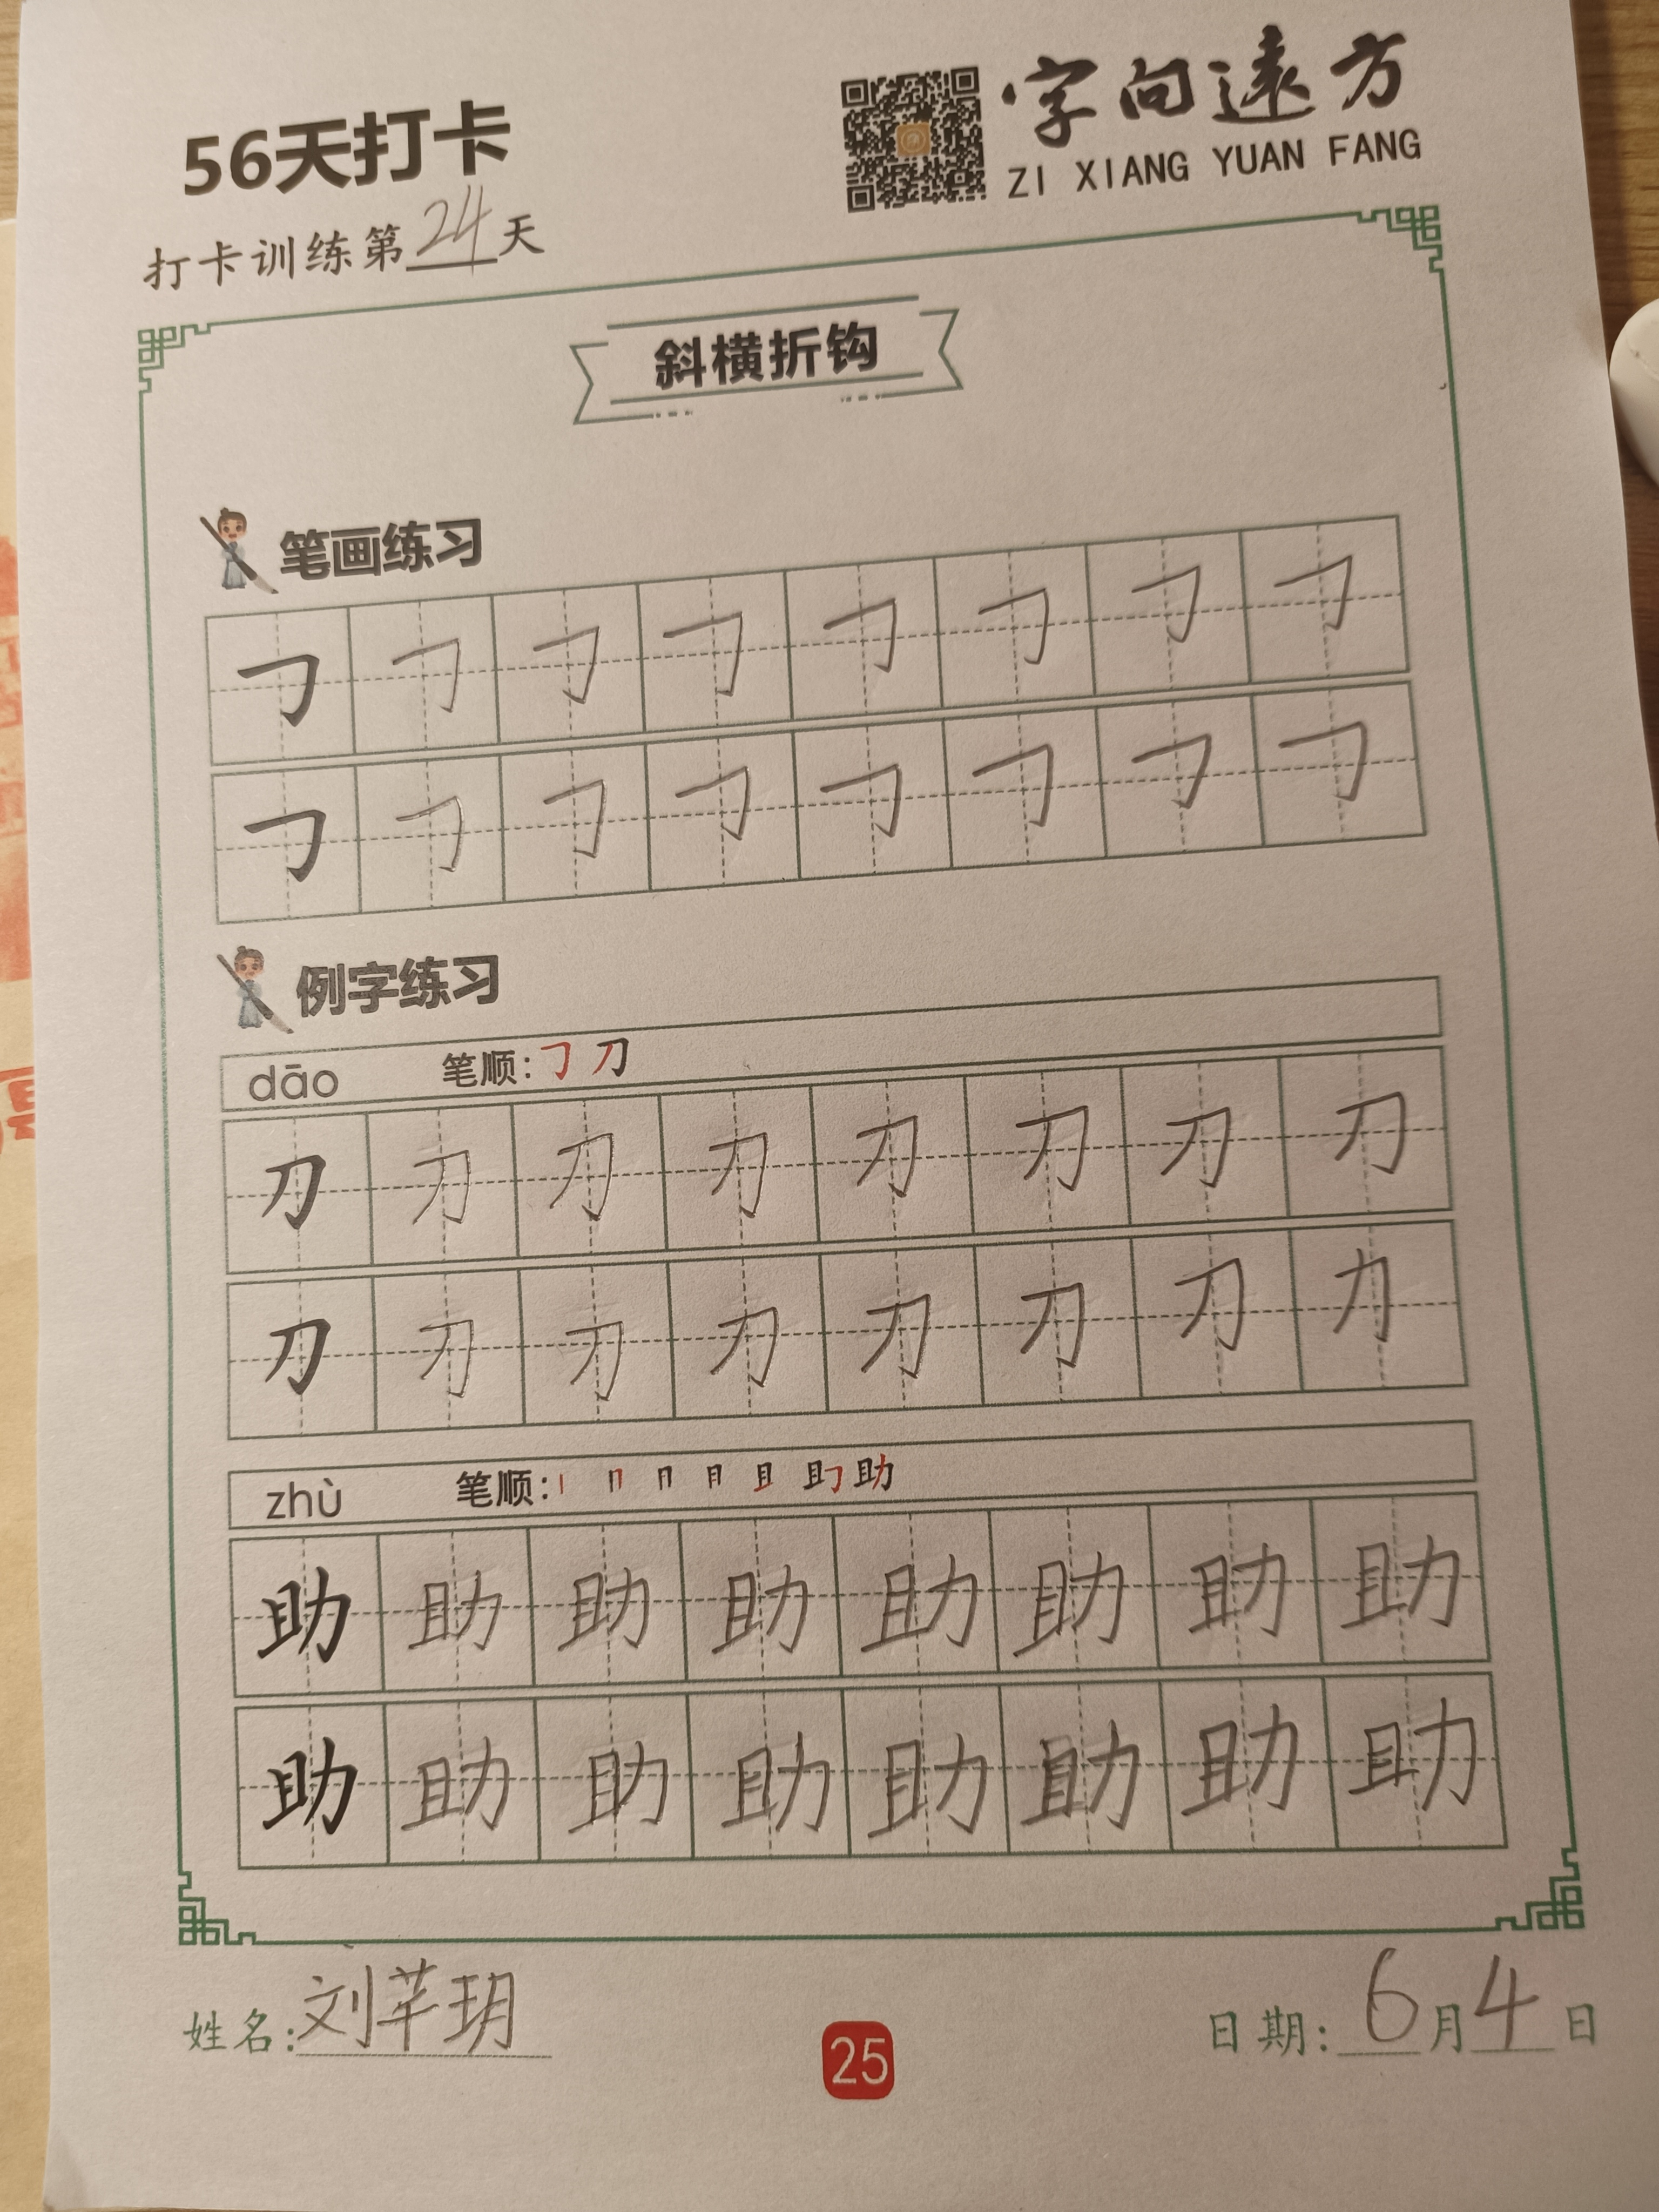 56天打卡
字向远方
ZI XIANG YUAN FANG
打卡训练第24天
斜横折钩
笔画练习
𠃌 𠃌 𠃌 𠃌 𠃌 𠃌 𠃌 𠃌
𠃌 𠃌 𠃌 𠃌 𠃌 𠃌 𠃌 𠃌
例字练习
dāo 笔顺:𠃌 刀
刀 刀 刀 刀 刀 刀 刀 刀
刀 刀 刀 刀 刀 刀 刀 力
zhù 笔顺: 助
助 助 助 助 助 助 助 助
助 助 助 助 助 助 助 助
姓名:刘芊玥
25
日期:6月4日